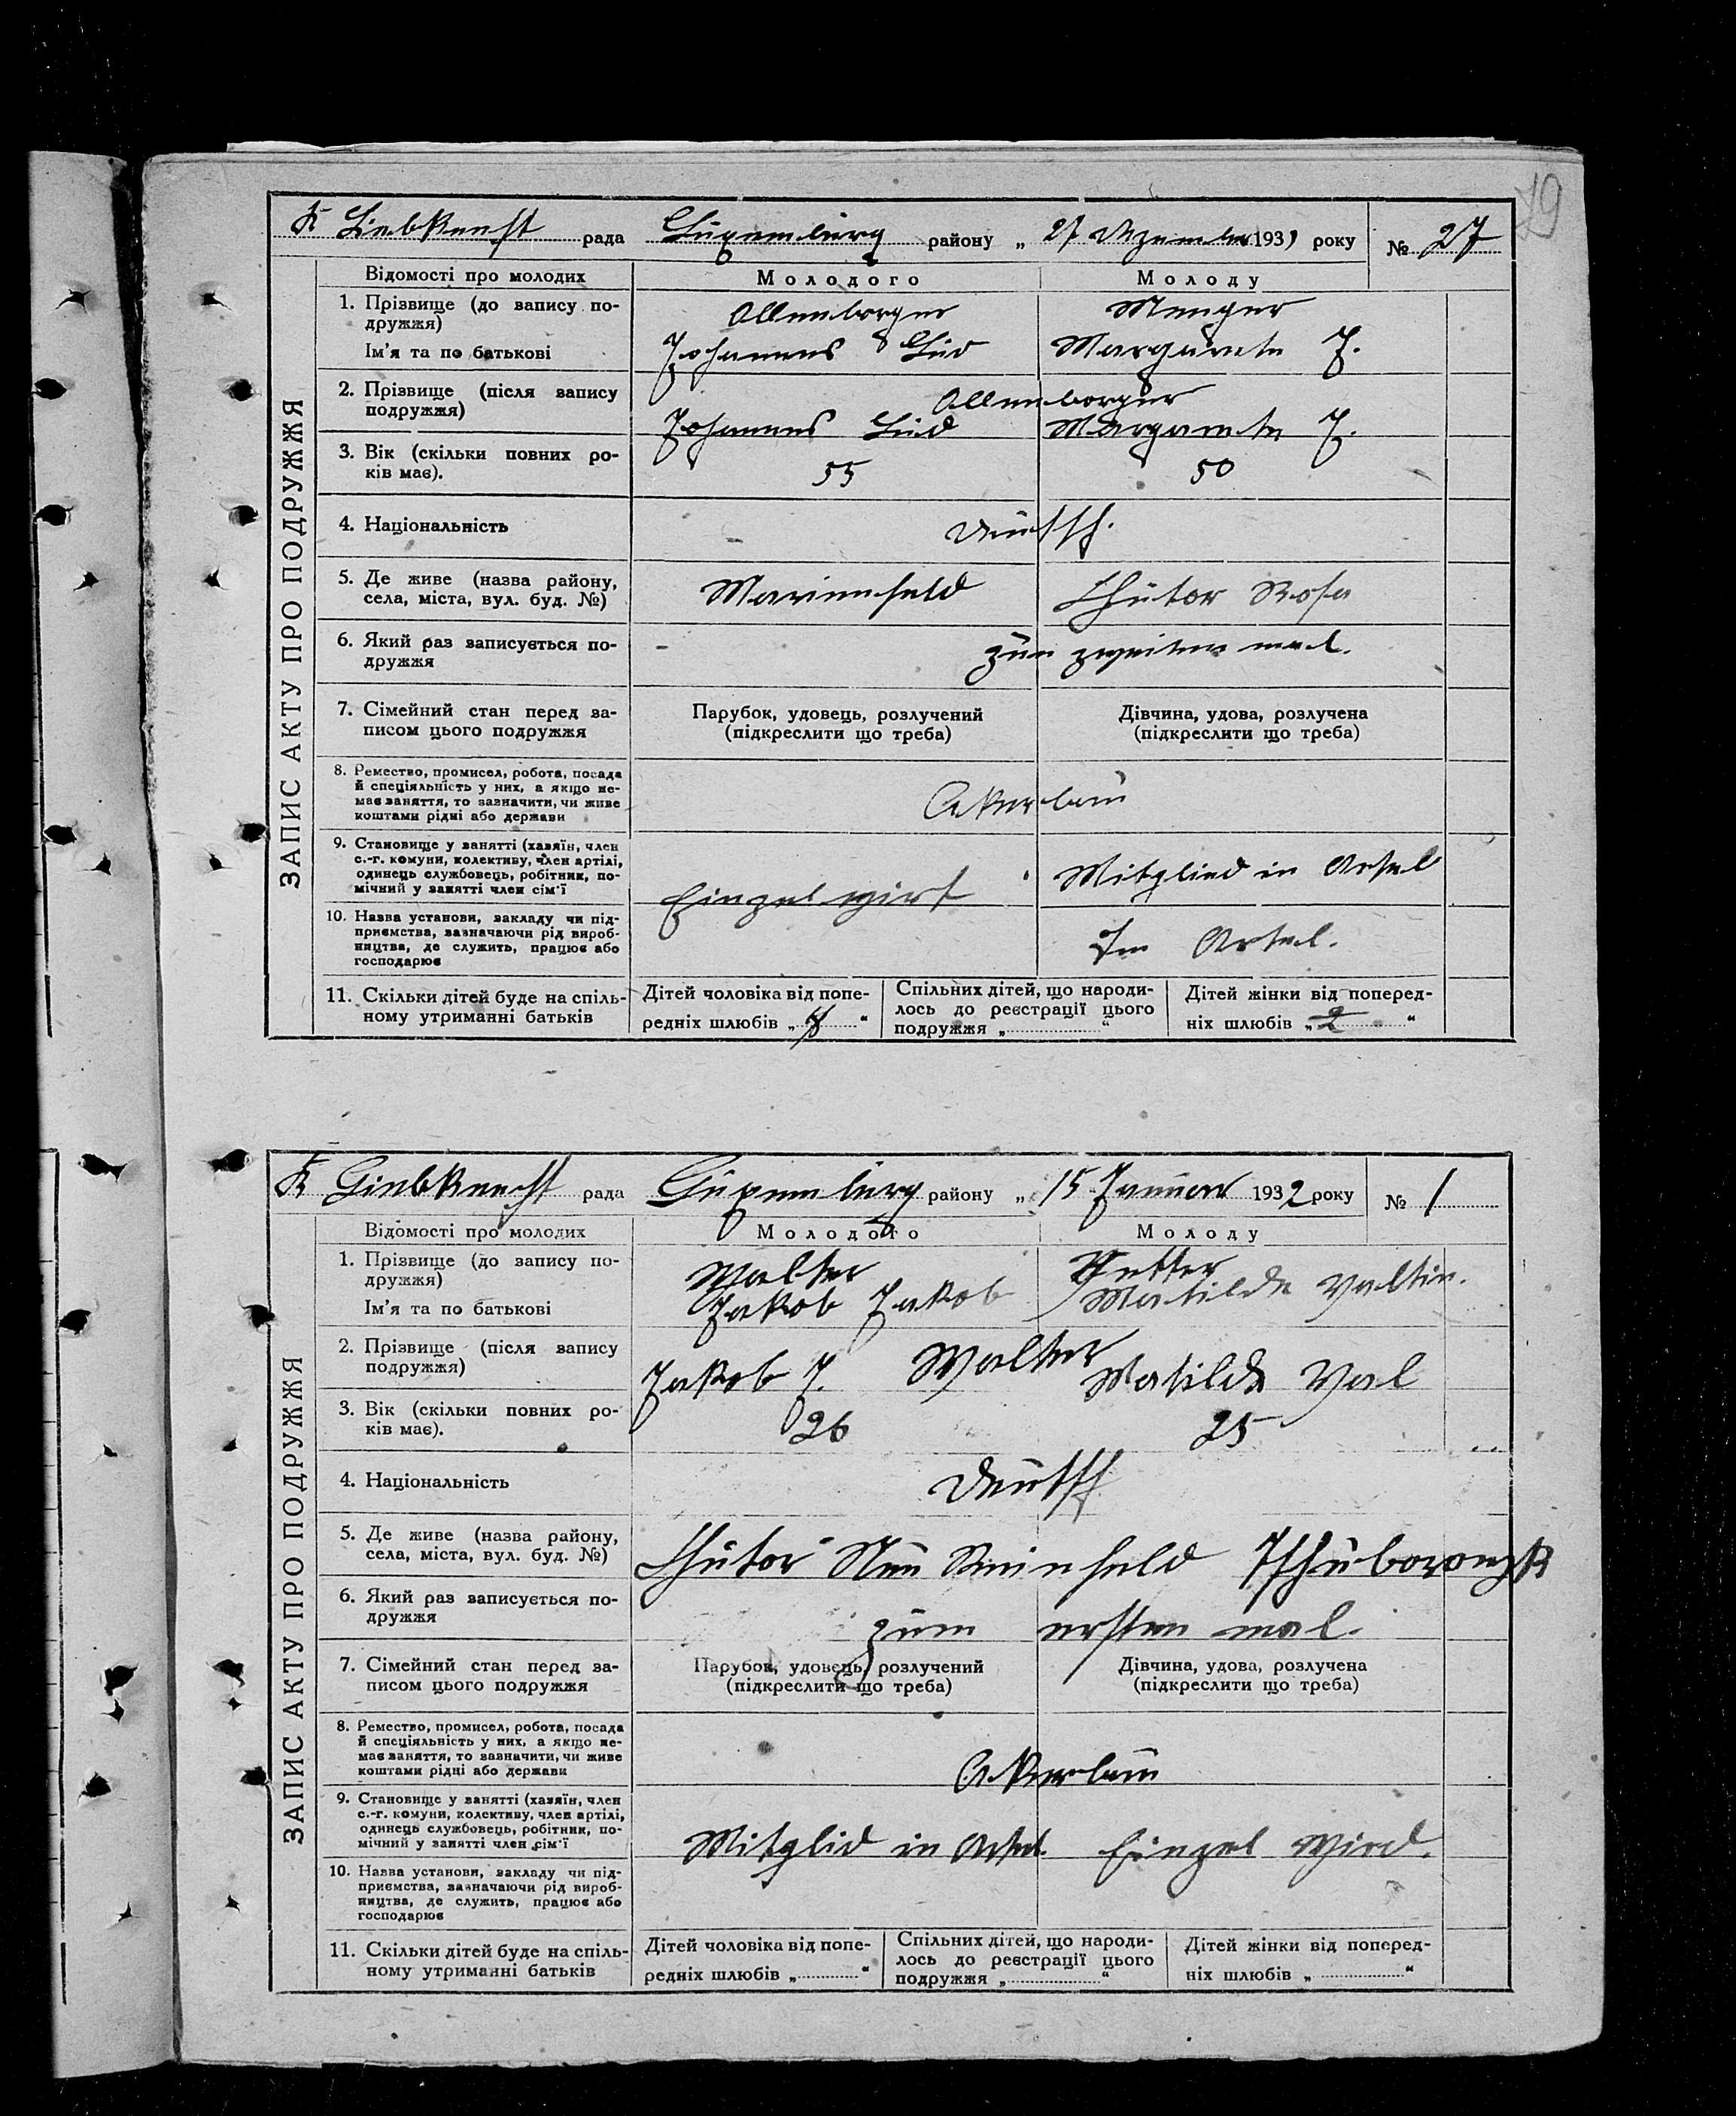 79
K Liebknecht рада Luxemburg району „ 27 Dezember 1931 року № 27
ЗАПИС АКТУ ПРО ПОДРУЖЖЯ
Відомості про молодих
Молодого
Молоду
1. Прізвище (до запису по-
дружжя)
Ім'я та по батькові
Allenborger
Johannes Lud
Menger
Margarete J.
2. Прізвище (після запису
подружжя)
Allenborger
Johannes Lud
Margarete J.
3. Вік (скільки повних ро-
ків має).
55
50
4. Національність
Deutsch.
5. Де живе (назва району,
села, міста, вул. буд. №)
Marienfeld
Chutor Rosa
6. Який раз записується по-
дружжя
zum zweiten mal.
7. Сімейний стан перед за-
писом цього подружжя
Парубок, удовець, розлучений
(підкреслити що треба)
Дівчина, удова, розлучена
(підкреслити що треба)
8. Ремество, промисел, робота, посада
й спеціяльність у них, а якщо не-
має заняття, то зазначити, чи живе
коштами рідні або держави
Akerbau
9. Становище у занятті (хазяїн, член
с.-г. комуни, колективу, член артілі,
одинець службовець, робітник, по-
мічний у занятті член сім'ї
Einzelwirt
Mitglied in Artel
10. Назва установи, закладу чи під-
приємства, зазначаючи рід вироб-
ництва, де служить, працює або
господарює
Im Artel.
11. Скільки дітей буде на спіль-
ному утриманні батьків
Дітей чоловіка від попе-
редніх шлюбів „ “
Спільних дітей, що народи-
лось до реєстрації цього
подружжя „ “
Дітей жінки від поперед-
ніх шлюбів „ 2 “
K Liebknecht рада Luxemburg району „ 15 Januar 1932 року № 1
ЗАПИС АКТУ ПРО ПОДРУЖЖЯ
Відомості про молодих
Молодого
Молоду
1. Прізвище (до запису по-
дружжя)
Ім'я та по батькові
Walter
Jakob Jakob
Matilde Valtin.
2. Прізвище (після запису
подружжя)
Walter
Jakob J.
Matilde Val
3. Вік (скільки повних ро-
ків має).
26
25
4. Національність
Deutsch
5. Де живе (назва району,
села, міста, вул. буд. №)
Chutor Neu Reinfeld
6. Який раз записується по-
дружжя
zum ersten mal.
7. Сімейний стан перед за-
писом цього подружжя
Парубок, удовець, розлучений
(підкреслити що треба)
Дівчина, удова, розлучена
(підкреслити що треба)
8. Ремество, промисел, робота, посада
й спеціяльність у них, а якщо не-
має заняття, то зазначити, чи живе
коштами рідні або держави
Akerbau
9. Становище у занятті (хазяїн, член
с.-г. комуни, колективу, член артілі,
одинець службовець, робітник, по-
мічний у занятті член сім'ї
Mitglid in Artel
Einzel Wird.
10. Назва установи, закладу чи під-
приємства, зазначаючи рід вироб-
ництва, де служить, працює або
господарює
11. Скільки дітей буде на спіль-
ному утриманні батьків
Дітей чоловіка від попе-
редніх шлюбів „ “
Спільних дітей, що народи-
лось до реєстрації цього
подружжя „ “
Дітей жінки від поперед-
ніх шлюбів „ “